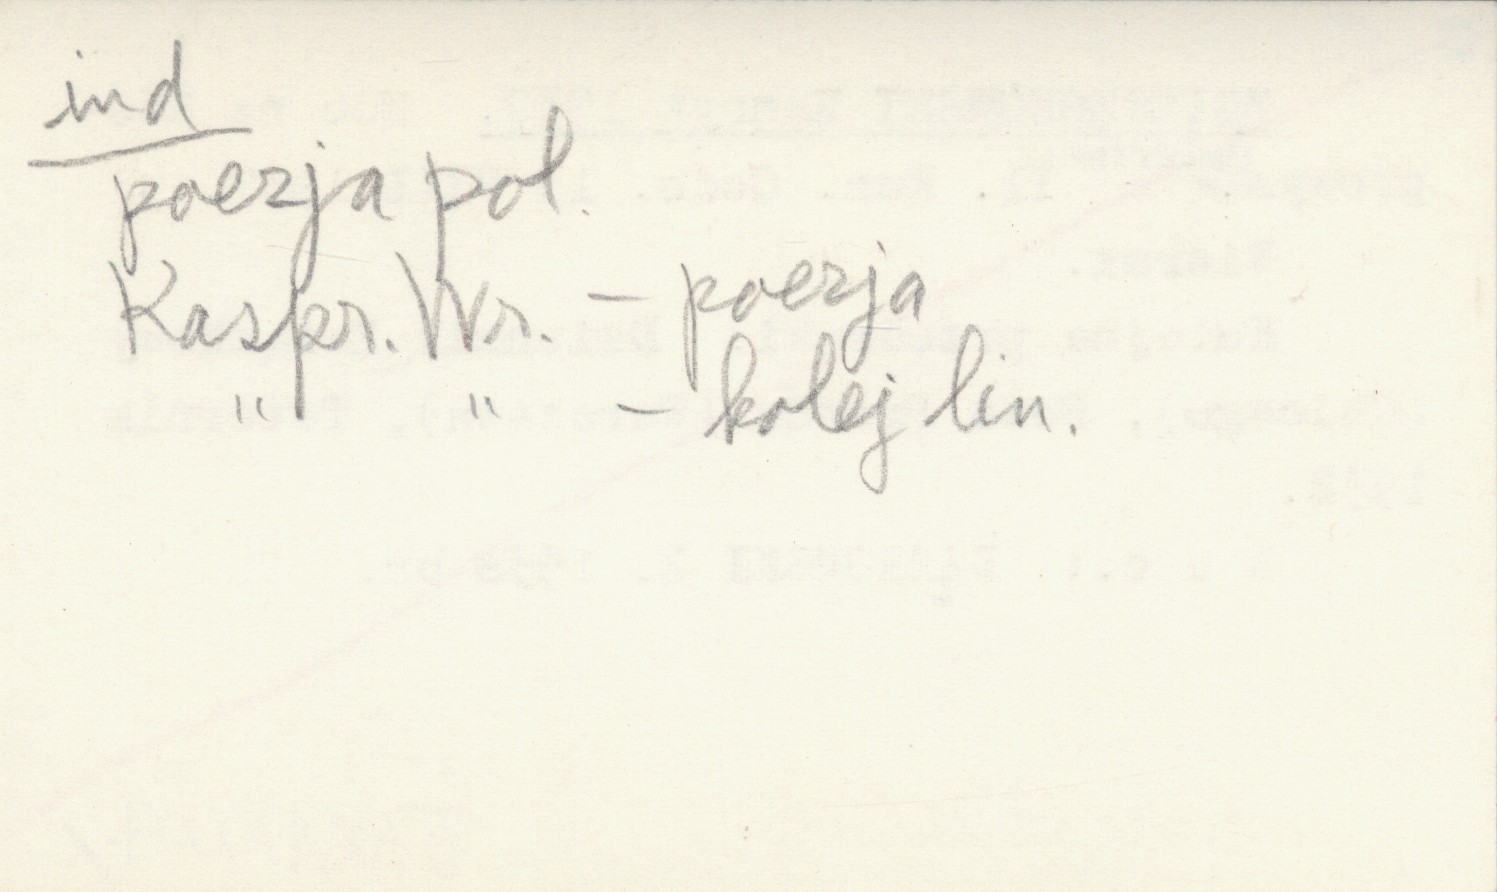 ind
poezja pol.
Kaspr. Wr. – poezja
" " – kolej lin.